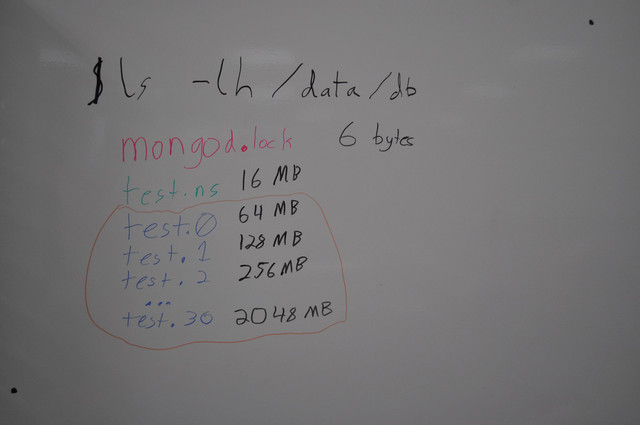 $ls -lh /data/db
mongod.lock 6 bytes
test.ns 16 MB
test.0 64 MB
test.1 128 MB
test.2 256MB
...
test.30 2048 MB